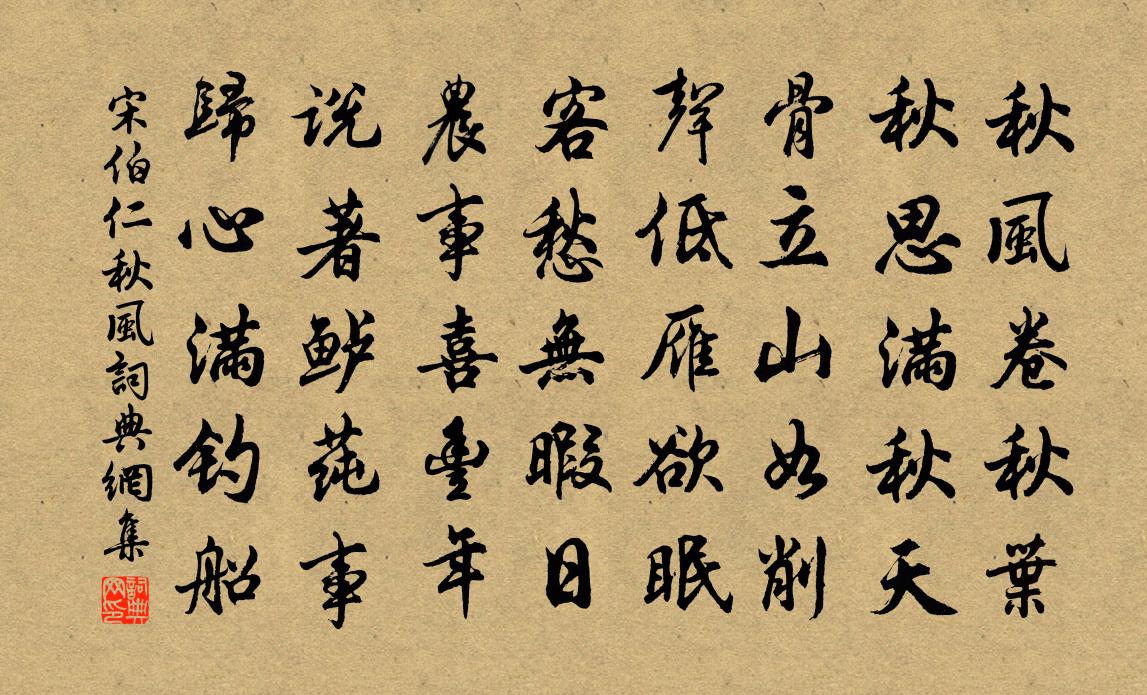 秋風卷秋葉
秋思滿秋天
骨立山如削
聲低雁欲眠
客愁無暇日
農事喜豐年
說著鲈蒓事
歸心滿釣船
宋伯仁秋風詞典網集
詞典网印